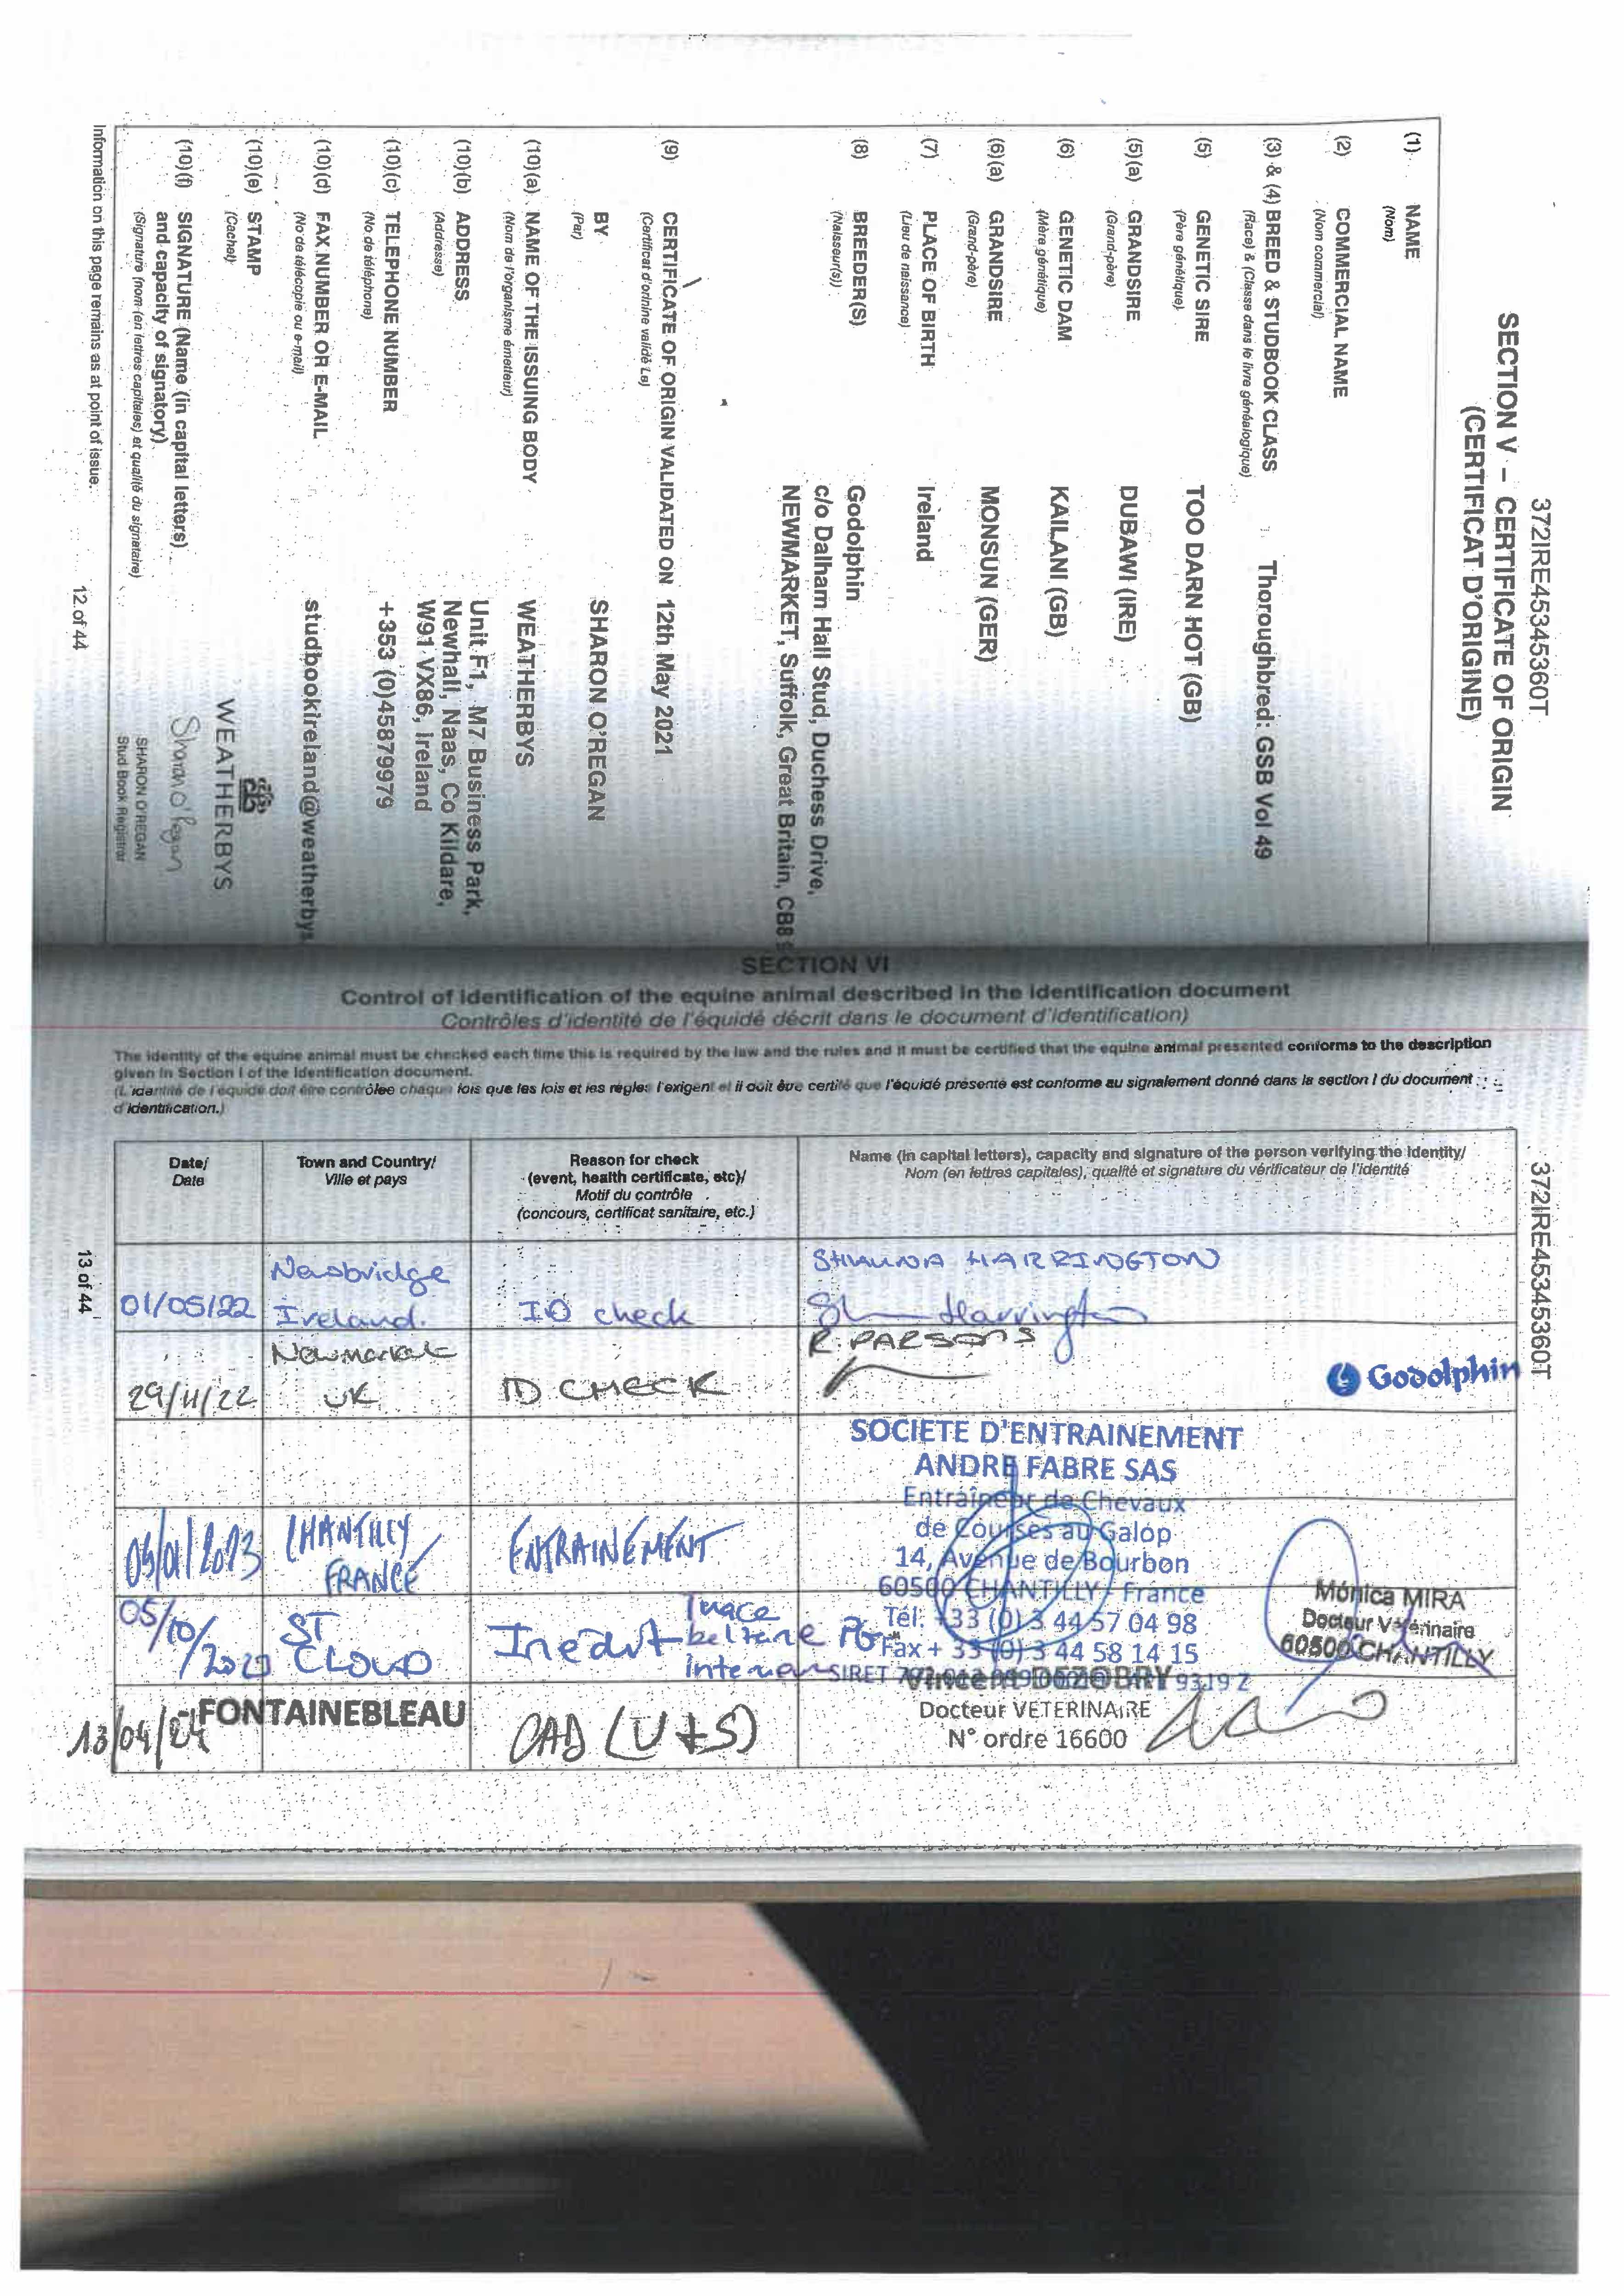 372IRE45345360T
SECTION V – CERTIFICATE OF ORIGIN
(CERTIFICAT D'ORIGINE)
(1) NAME
(Nom)
(2) COMMERCIAL NAME
(Nom commercial)
(3) & (4) BREED & STUDBOOK CLASS : Thoroughbred: GSB Vol 49
(Race) & (Classe dans le livre généalogique)
(5) GENETIC SIRE TOO DARN HOT (GB)
(Père génétique)
(5)(a) GRANDSIRE DUBAWI (IRE)
(Grand-père)
(6) GENETIC DAM KAILANI (GB)
(Mère génétique)
(6)(a) GRANDSIRE MONSUN (GER)
(Grand-père)
(7) PLACE OF BIRTH Ireland
(Lieu de naissance)
(8) BREEDER(S) Godolphin
(Naisseur(s)) c/o Dalham Hall Stud, Duchess Drive,
NEWMARKET, Suffolk, Great Britain, CB8
(9) CERTIFICATE OF ORIGIN VALIDATED ON 12th May 2021
(Certificat d'origine validé Le)
BY SHARON O'REGAN
(Par)
(10)(a) NAME OF THE ISSUING BODY WEATHERBYS
(Nom de l'organisme émetteur)
(10)(b) ADDRESS Unit F1, M7 Business Park,
(Addresse) Newhall, Naas, Co Kildare,
W91 VX86, Ireland
(10)(c) TELEPHONE NUMBER +353 (0)45879979
(No de téléphone)
(10)(d) FAX NUMBER OR E-MAIL studbookireland@weatherbys
(No de télécopie ou e-mail)
(10)(e) STAMP WEATHERBYS
(Cachet)
(10)(f) SIGNATURE (Name (in capital letters) Sharon O'Regan
and capacity of signatory)
(Signature (nom (en lettres capitales) et qualité du signataire)
SHARON O'REGAN
Stud Book Registrar
Information on this page remains as at point of issue.
12 of 44
SECTION VI
Control of identification of the equine animal described in the identification document
Contrôles d'identité de l'équidé décrit dans le document d'identification)
The identity of the equine animal must be checked each time this is required by the law and the rules and it must be certified that the equine animal presented conforms to the description
given in Section I of the identification document.
(L'identité de l'équidé doit être contrôlée chaque fois que les lois et les règles l'exigent et il doit être certifié que l'équidé présenté est conforme au signalement donné dans la section I du document
d'identification.)
Date/
Date
Town and Country/
Ville et pays
Reason for check
(event, health certificate, etc)/
Motif du contrôle
(concours, certificat sanitaire, etc.)
Name (in capital letters), capacity and signature of the person verifying the identity/
Nom (en lettres capitales), qualité et signature du vérificateur de l'identité
372IRE45345360T
13 of 44
01/05/22
Newbridge
Ireland.
ID check
SHAUNA HARRINGTON
29/11/22
Newmarket
UK
ID CHECK
R. PARSONS
Godolphin
SOCIETE D'ENTRAINEMENT
ANDRE FABRE SAS
Entraîneur de Chevaux
de Courses au Galop
14, Avenue de Bourbon
60500 CHANTILLY - France
Tél: +33 (0) 3 44 57 04 98
Fax + 33 (0) 3 44 58 14 15
SIRET
CHANTILLY
FRANCE
ENTRAINEMENT
Monica MIRA
Docteur Vétérinaire
60500 CHANTILLY
05/10/2023
ST
CLOUD
Inedit
13/04/24
FONTAINEBLEAU
CAD (U+S)
Vincent DOZOBRY
Docteur VETERINAIRE
N° ordre 16600